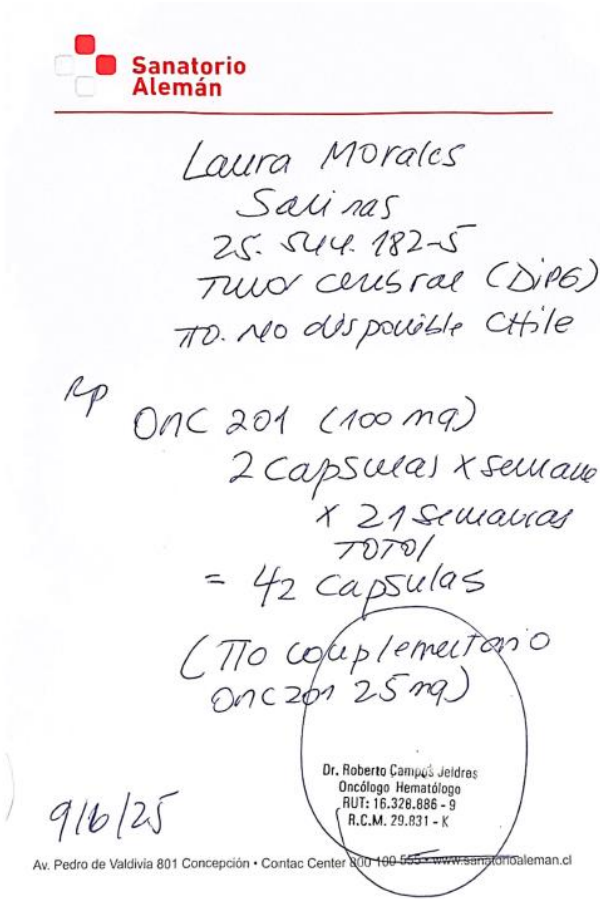 Sanatorio
Alemán
Laura Morales
Salinas
25.544.182-5
Tumor cerebral (DIPG)
TTO. No disponible Chile
Rp
ONC 201 (100 mg)
2 capsulas x semana
x 21 semanas
TOTAL
= 42 capsulas
(TTO complementario
ONC201 25 mg)
Dr. Roberto Campos Jeldres
Oncólogo Hematólogo
RUT: 16.328.886 - 9
R.C.M. 29.831 - K
9/6/25
Av. Pedro de Valdivia 801 Concepción • Contac Center 800 100 555 • www.sanatorioaleman.cl